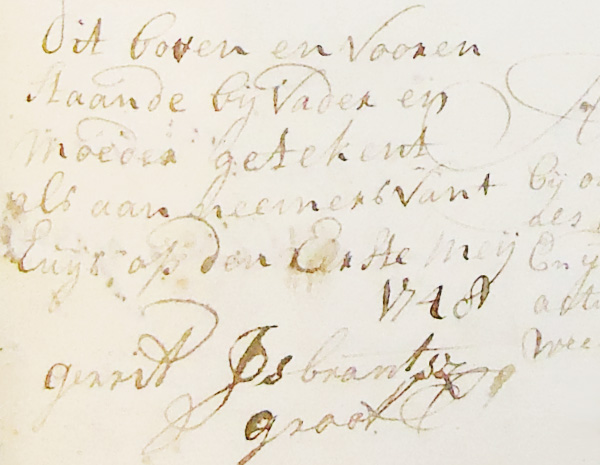 Dit boven en vooren
staande bij vader en
moeder getekent
als aan neemers van't
Huijs op den Eerste Meij
1748
gerrit IJsbrantsz
groot
bij
des